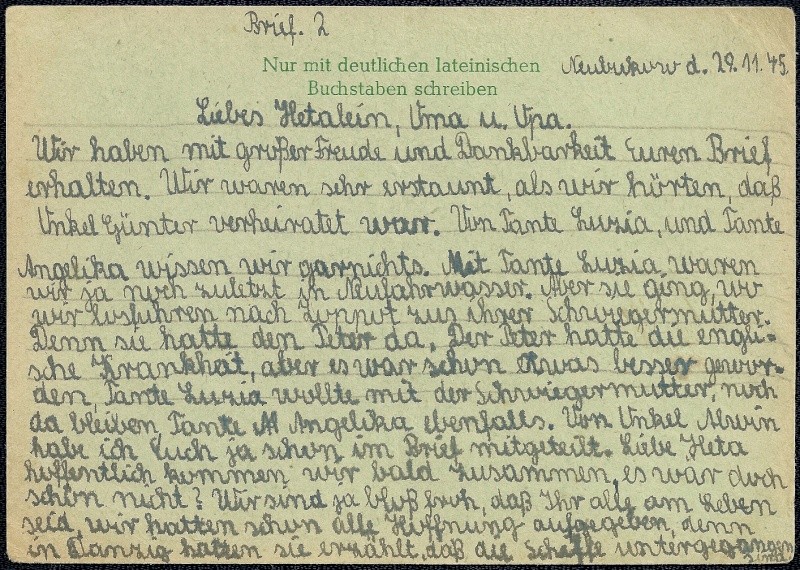 Brief. 2
Nur mit deutlichen lateinischen
Buchstaben schreiben
Neubukow d. 29.11.45.
Liebes Hetalein, Oma u. Opa.
Wir haben mit großer Freude und Dankbarkeit Euren Brief
erhalten. Wir waren sehr erstaunt, als wir hörten, daß
Onkel Günter verheiratet war. Von Tante Luzia, und Tante
Angelika wissen wir garnichts. Mit Tante Luzia, waren
wir ja noch zuletzt in Neufahrwasser. Aber sie ging, wo
wir losfuhren nach Zoppot zus ihrer Schwiegermutter.
Denn sie hatte den Peter da. Der Peter hatte die engli-
sche Krankhat, aber es war schon etwas besser gewor-
den, Tante Luzia wollte mit der Schwiegermutter, noch
da bleiben, Tante Angelika ebenfalls. Von Onkel Alwin
habe ich Euch ja schon im Brief mitgeteilt. Liebe Heta
hoffentlich kommen wir bald zusammen, es war doch
schön nicht? Wir sind ja bloß froh, daß Ihr alle am Leben
seid, wir hatten schon alle Hoffnung aufgegeben, denn
in Danzig hatten sie erzählt, daß die Schiffe untergegangen
sind.